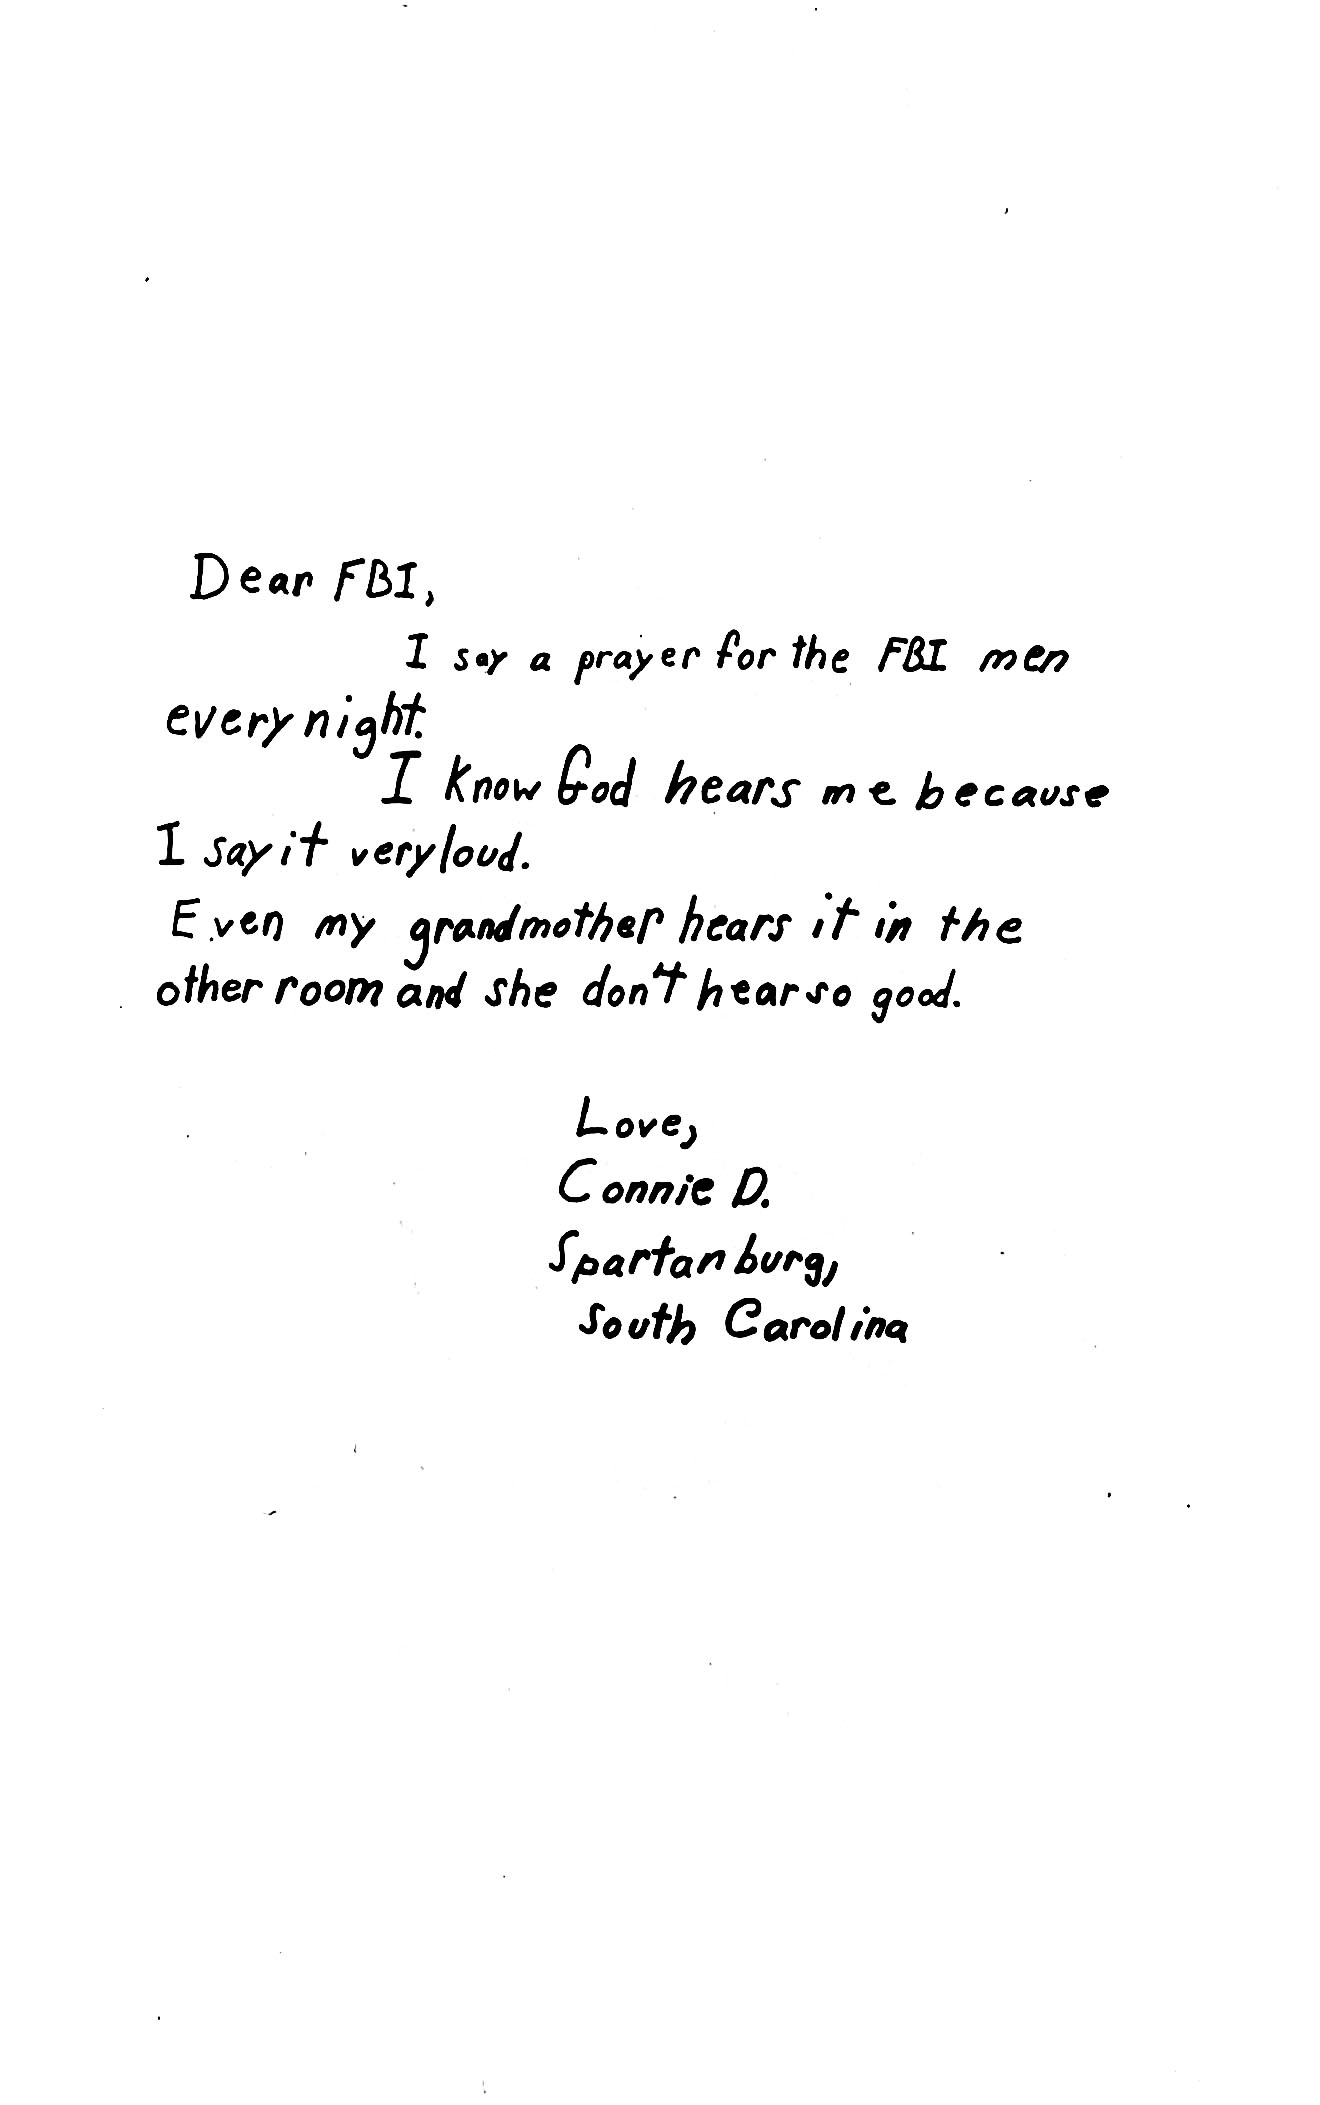 Dear FBI,
I say a prayer for the FBI men
every night.
I know God hears me because
I say it very loud.
Even my grandmother hears it in the
other room and she don't hear so good.
Love,
Connie D.
Spartanburg,
South Carolina